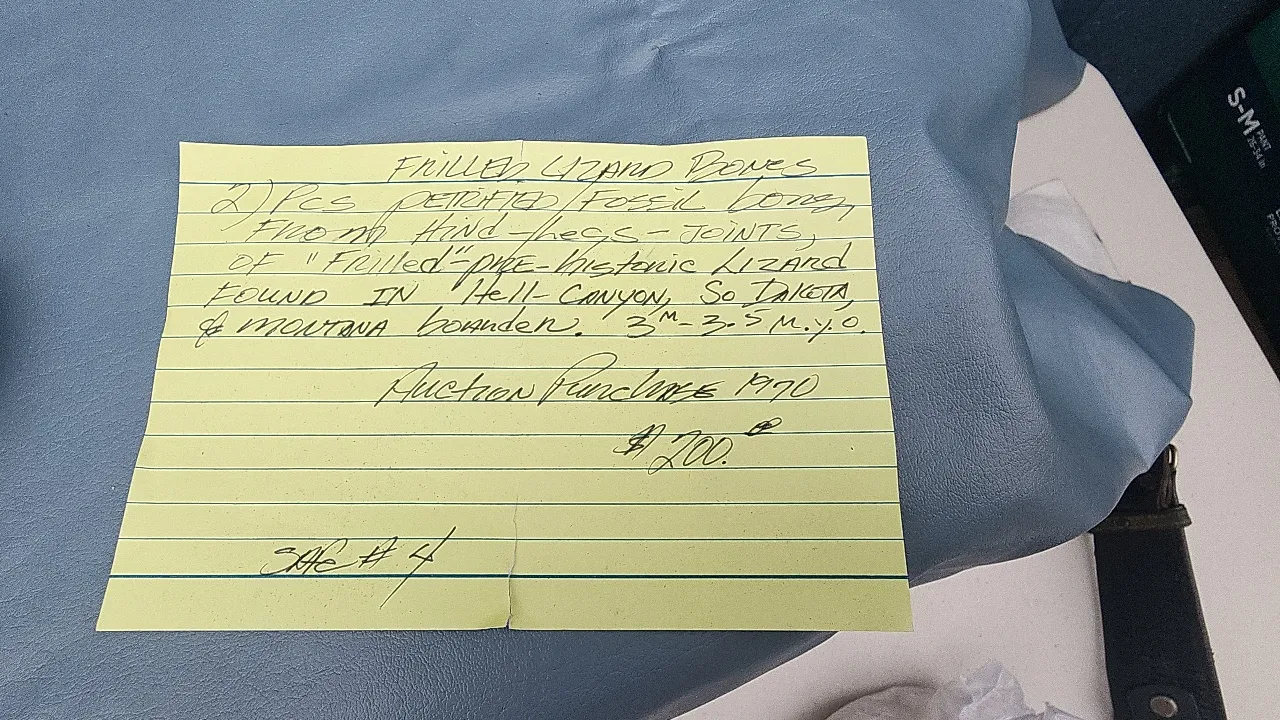 FRILLED LIZARD BONES
2) PCS PETRIFIED/FOSSIL bones,
FROM HIND-LEGS-JOINTS,
OF "Frilled"-PRE-historic LIZARD
FOUND IN Hell-CANYON, SO DAKOTA,
& MONTANA boarder. 3M-3.5 M.y.o.
AUCTION PURCHASE 1970
$200.
SAFE # 4
S-M
PANT
26-34 in